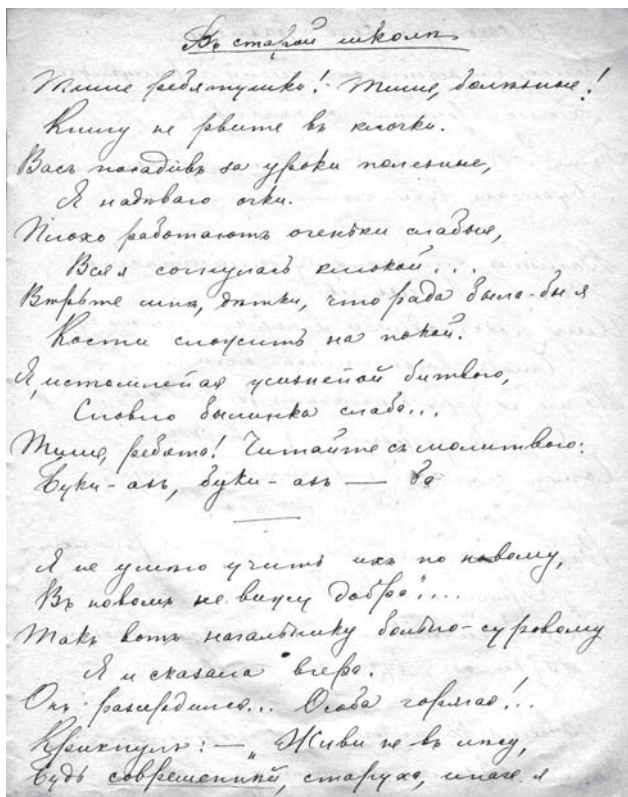 Въ старой школѣ
Тише ребятушки! Тише, болѣзные!
Книгу не рвите въ клочки.
Васъ посадивъ за уроки полезные,
Я надѣваю очки.
Плохо работаютъ оченьки слабые,
Вся я согнулась клюкой...
Вѣрьте мнѣ, дѣтки, что рада была-бы я
Кости сложить на покой.
Я, истомленная жизненной битвою,
Словно былинка слаба...
Тише, ребята! Читайте съ молитвою:
Буки-азъ, буки-азъ — ба
Я не умѣю учить ихъ по новому,
Въ новомъ не вижу добра"...
Такъ вотъ начальнику больно-суровому
Я и сказала вчера.
Онъ разсердился... Особа горячая!..
Крикнулъ: — „Живи не въ лѣсу,
Будь современной, старуха, иначе я